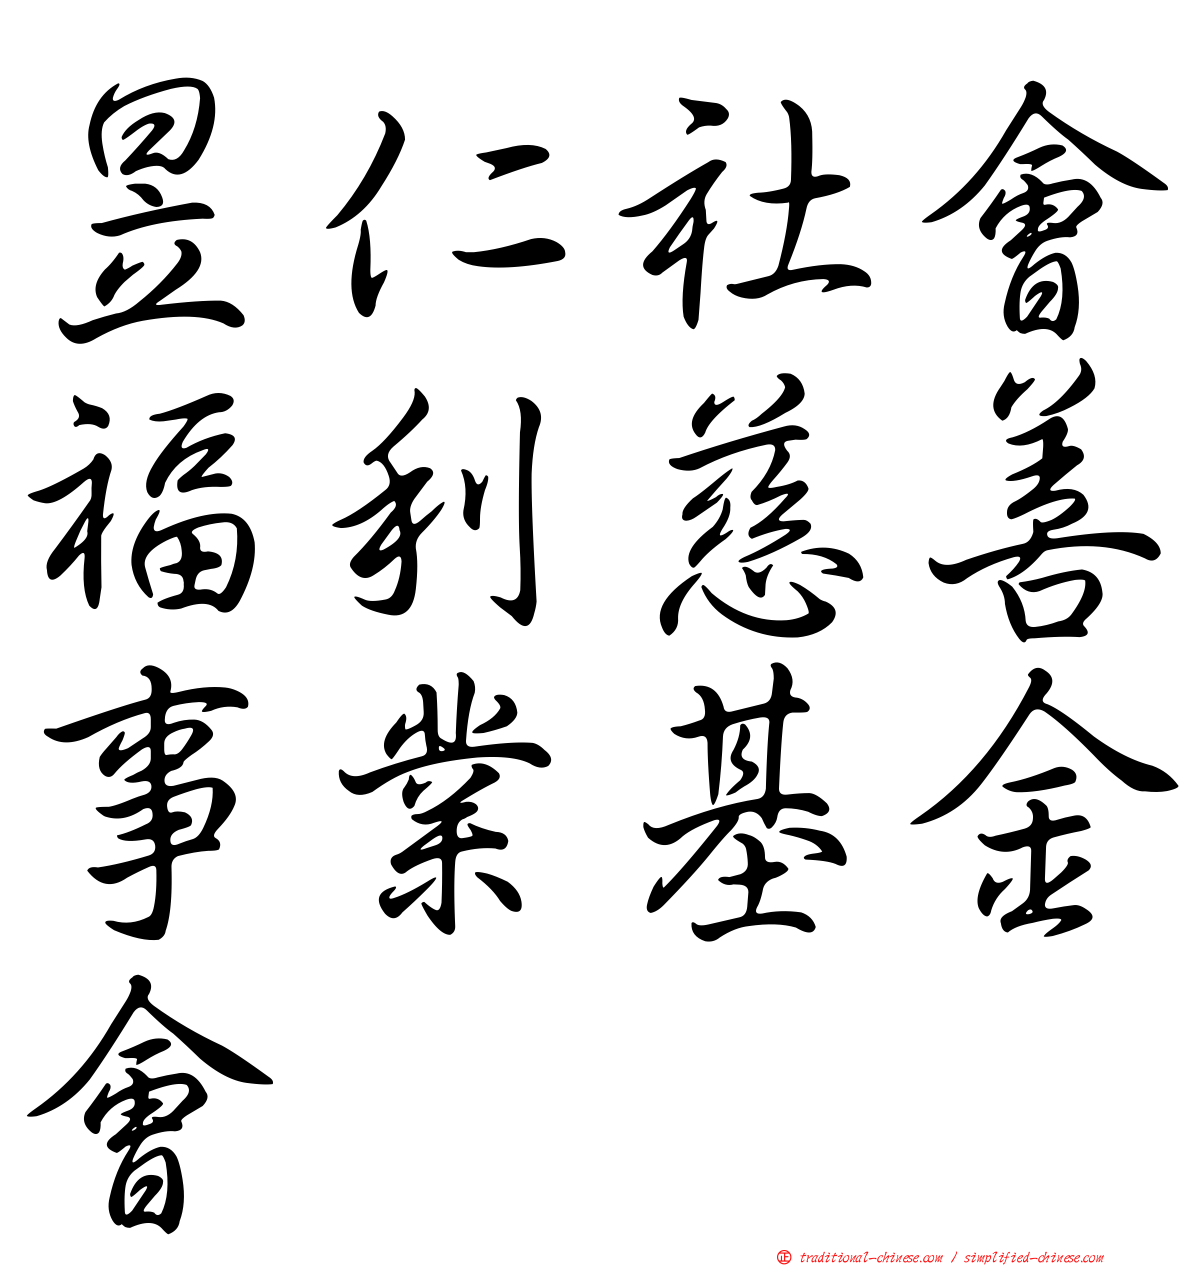 昱仁社會
福利慈善
事業基金
會
正 traditional-chinese.com / simplified-chinese.com